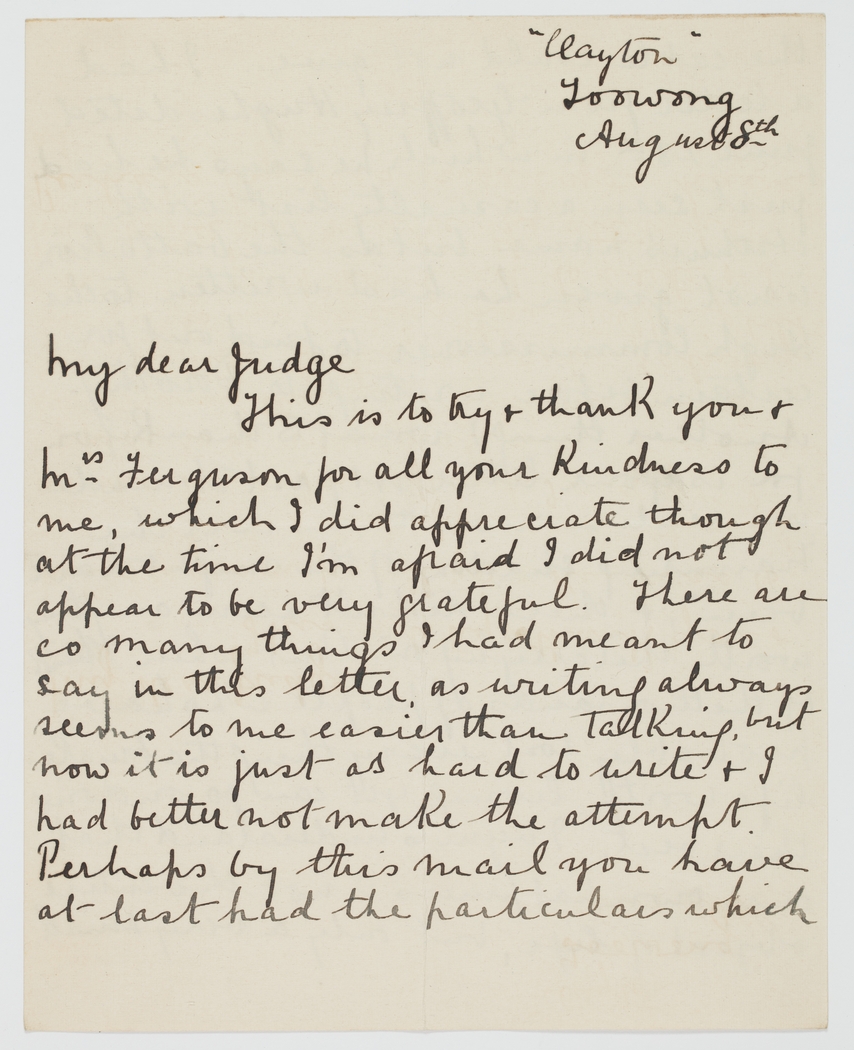 "Clayton"
Toowong
August 8th
My dear Judge
This is to try & thank you &
Mrs Ferguson for all your kindness to
me, which I did appreciate though
at the time I'm afraid I did not
appear to be very grateful. There are
so many things I had meant to
say in this letter, as writing always
seems to me easier than talking, but
now it is just as hard to write & I
had better not make the attempt.
Perhaps by this mail you have
at last had the particulars which